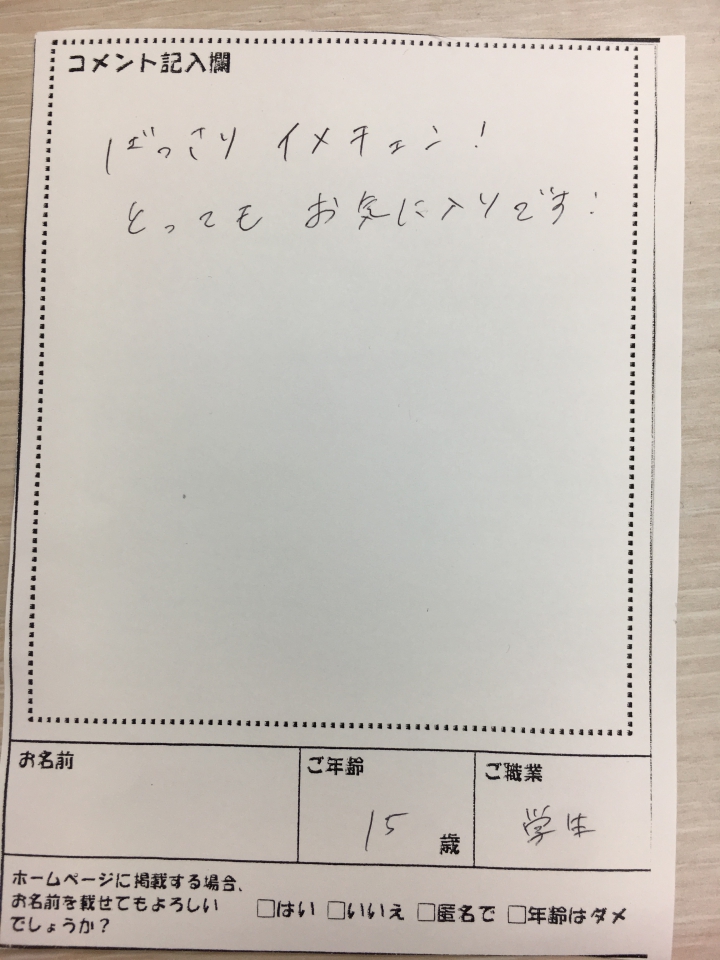 コメント記入欄
ばっさり イメチェン!
とっても お気に入りです!
お名前
ご年齢
ご職業
15 歳
学生
ホームページに掲載する場合、
お名前を載せてもよろしい
でしょうか?
□はい □いいえ □匿名で □年齢はダメ